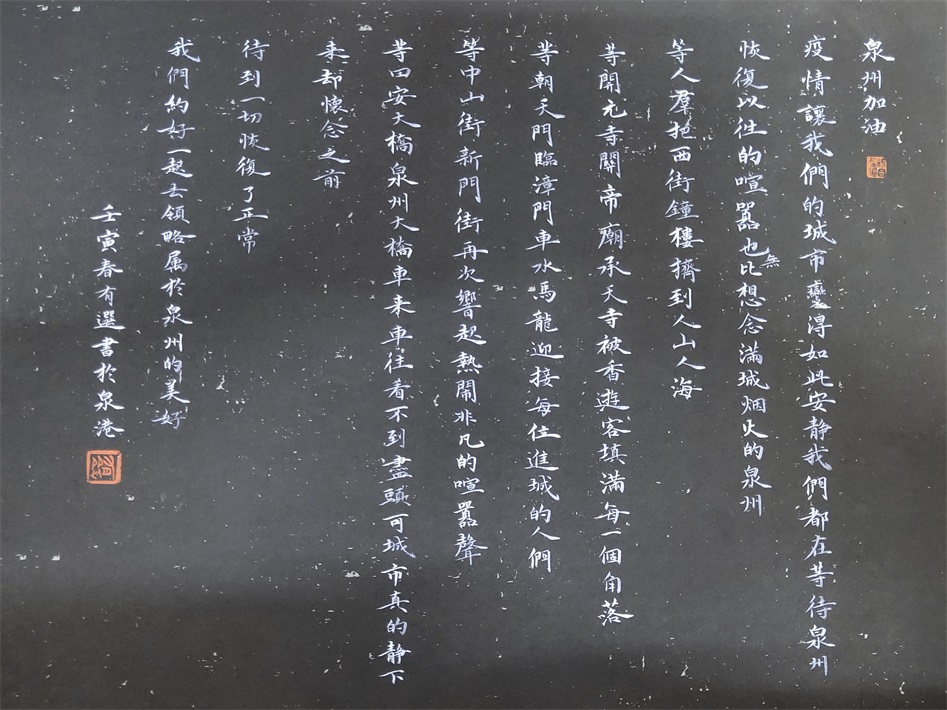 泉州加油
疫情讓我們的城市變得如此安靜我們都在等待泉州
恢復以往的喧囂也無比想念滿城烟火的泉州
等人羣把西街鐘樓擠到人山人海
等開元寺關帝廟承天寺被香遊客填滿每一個角落
等朝天門臨漳門車水馬龍迎接每位進城的人們
等中山街新門街再次響起熱鬧非凡的喧囂聲
等田安大橋泉州大橋車来車往看不到盡頭可城市真的靜下
来却懷念之前
待到一切恢復了正常
我們約好一起去領略属於泉州的美好
壬寅春有選書於泉港